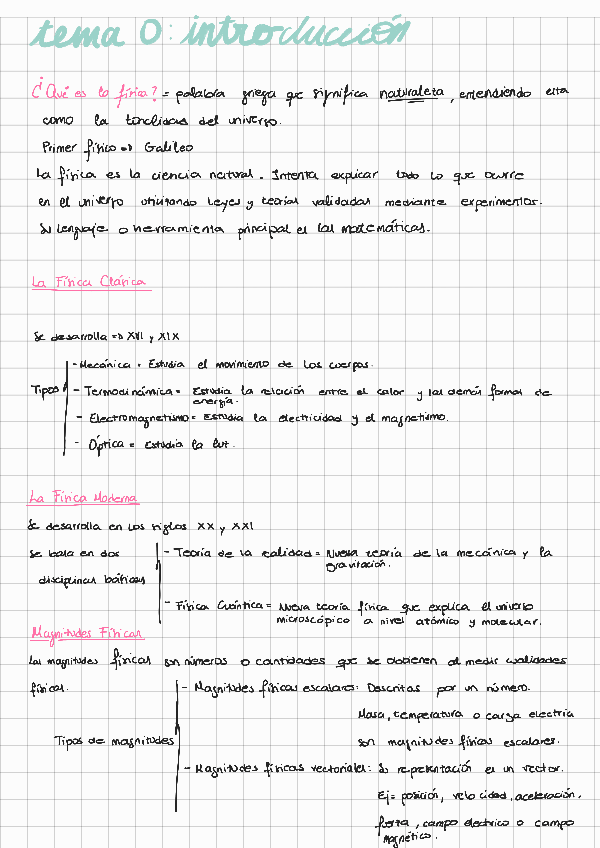 tema 0: introducción
¿Qué es la física? = palabra griega que significa naturaleza, entendiendo esta
como la totalidad del universo.
Primer físico => Galileo
La física es la ciencia natural. Intenta explicar todo lo que ocurre
en el universo utilizando leyes y teorías validadas mediante experimentos.
Su lenguaje o herramienta principal es las matemáticas.
La Física Clásica
Se desarrolla => XVII y XIX
Tipos
- Mecánica = Estudia el movimiento de los cuerpos.
- Termodinámica = Estudia la relación entre el calor y las demás formas de
energía.
- Electromagnetismo = Estudia la electricidad y el magnetismo.
- Óptica = Estudia la luz.
La Física Moderna
Se desarrolla en los siglos XX y XXI
Se basa en dos
disciplinas básicas
- Teoría de la realidad = Nueva teoría de la mecánica y la
gravitación.
- Física Cuántica = Nueva teoría física que explica el universo
microscópico a nivel atómico y molecular.
Magnitudes Físicas
Las magnitudes físicas son números o cantidades que se obtienen al medir cualidades
físicas.
Tipos de magnitudes
- Magnitudes físicas escalares: Descritas por un número.
Masa, temperatura o carga electria
son magnitudes físicas escalares.
- Magnitudes físicas vectoriales: Su representación es un vector.
Ej = posición, velocidad, aceleración,
fuerza, campo electrico o campo
magnético.